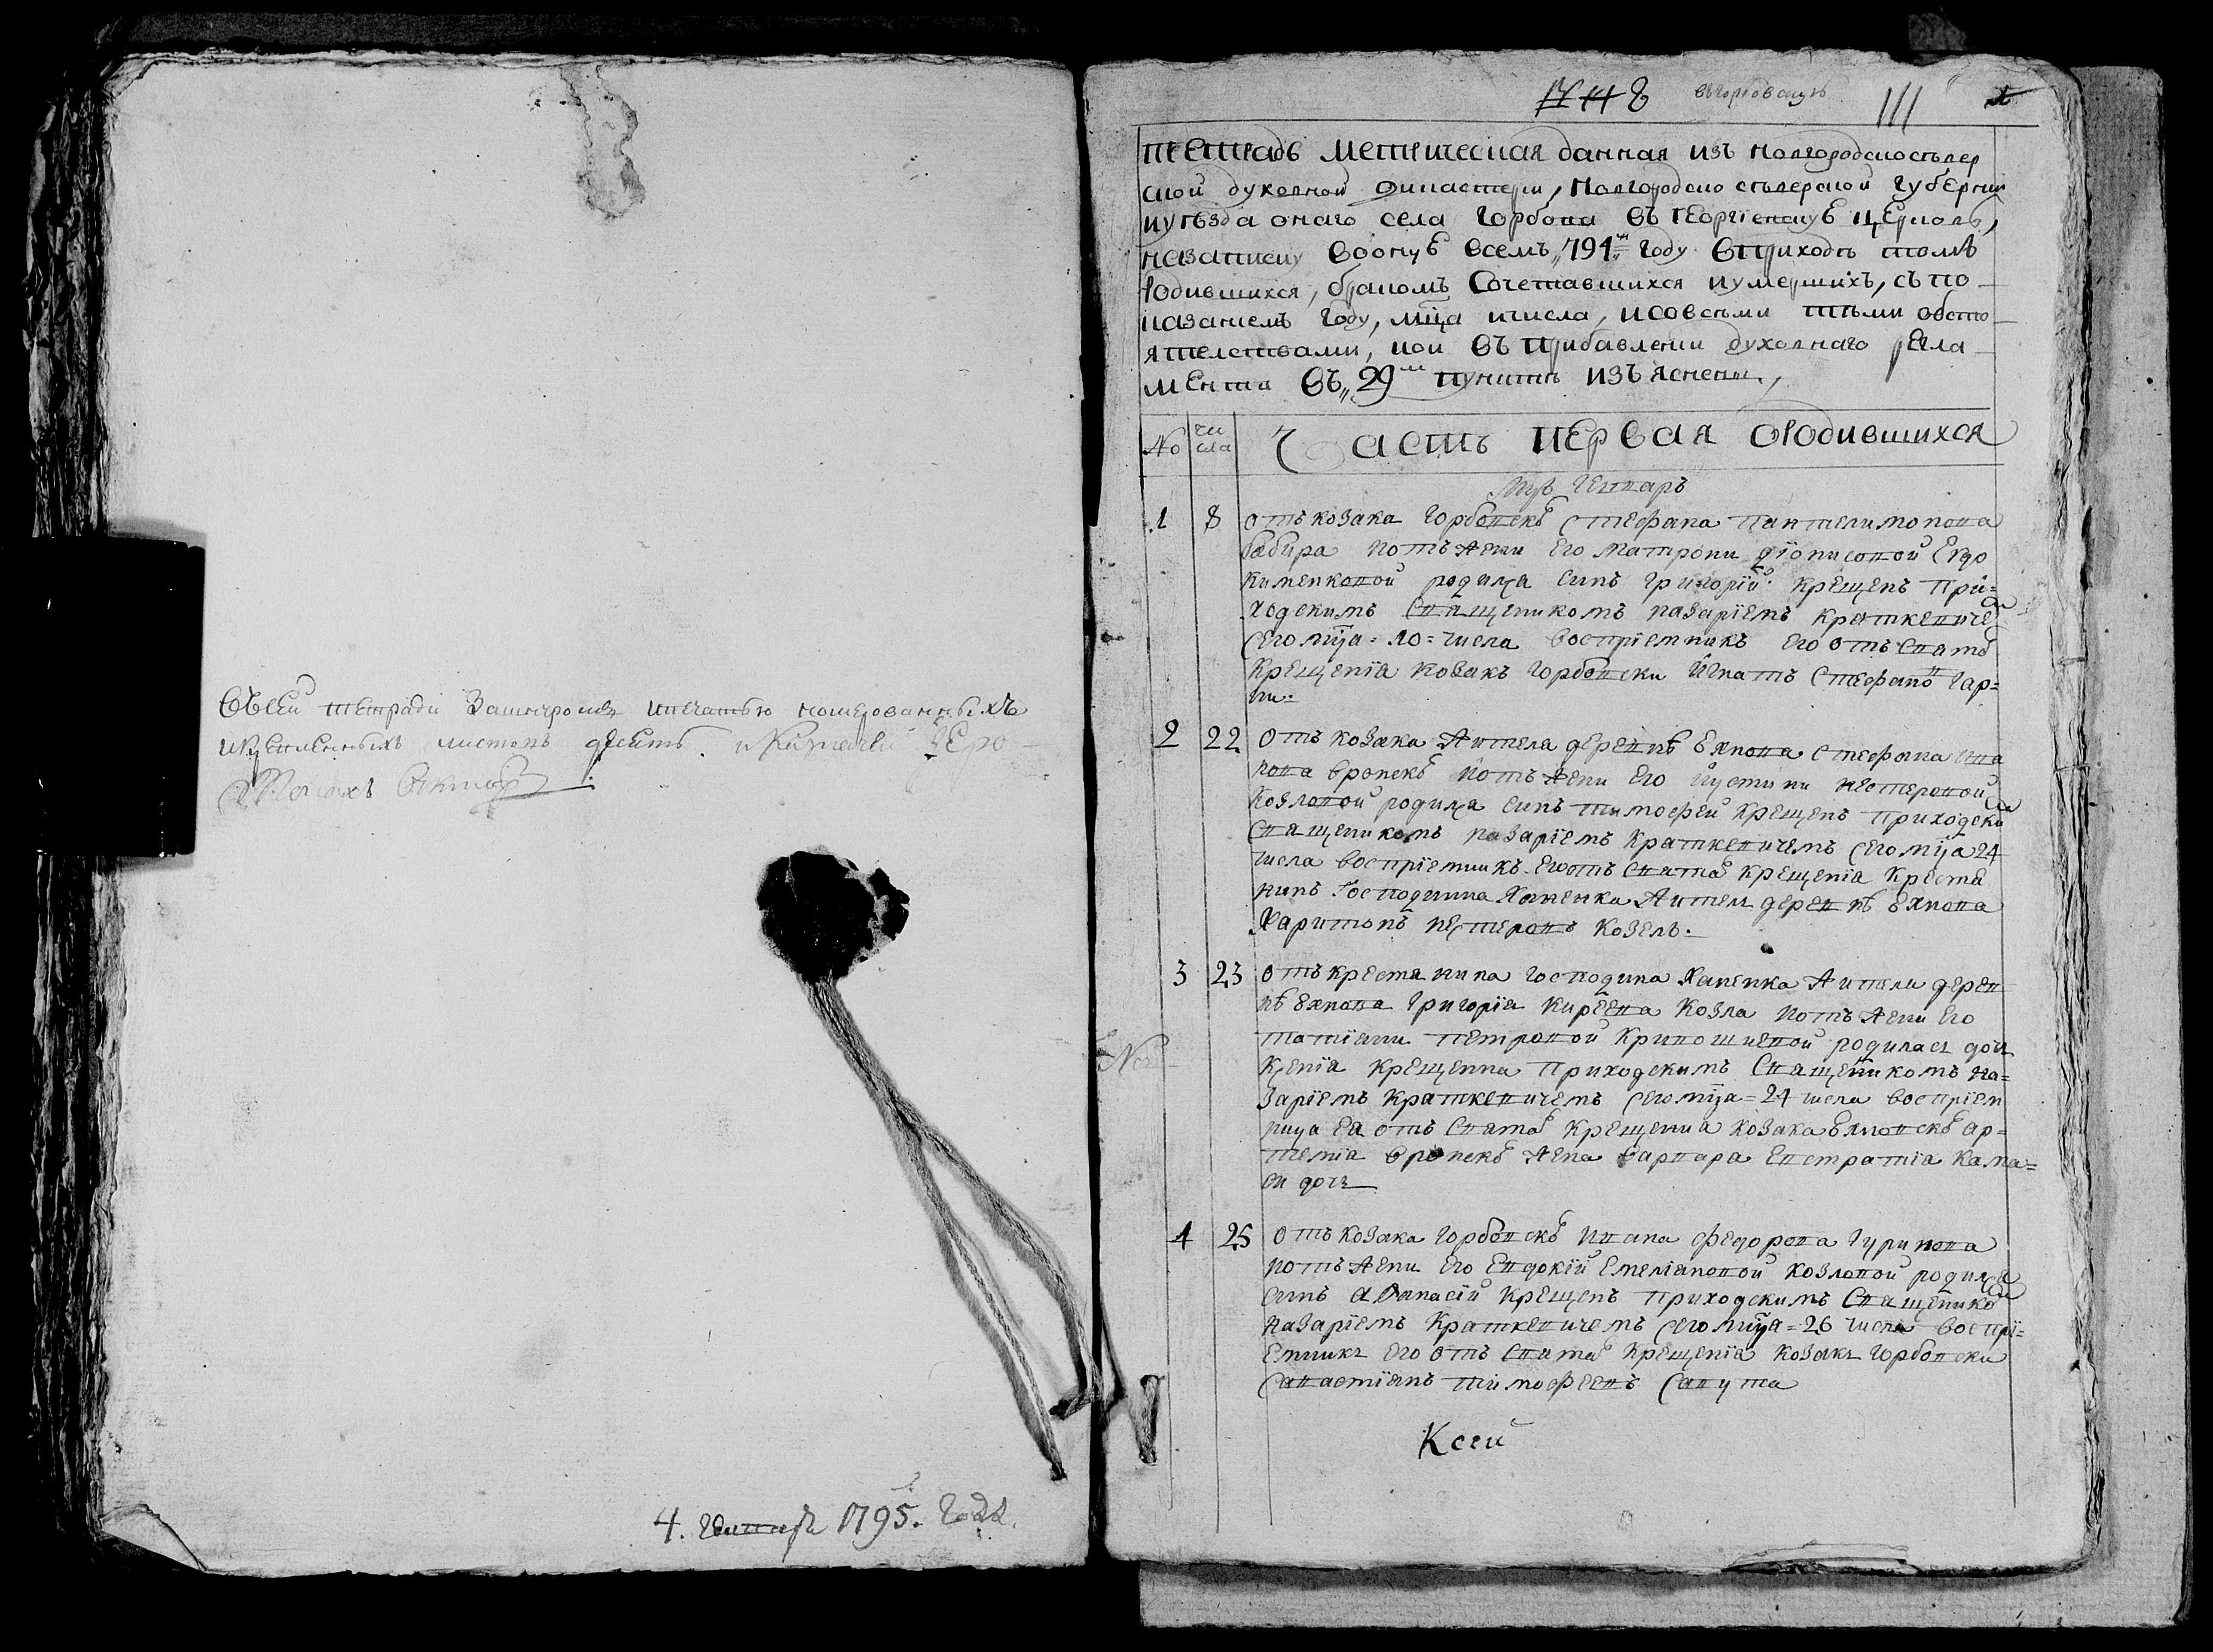 Въсей тетради за шнуромъ и печатью номерованныхъ
и скрепленныхъ листовъ десять
4. генваря 1795. года
8 въ горбовскую 111
Тетрадь метрическая данная изъ новгородскосѣвер
ской духовной дикастерии, новгородско сѣверской губернии
и уѣзда онаго села Горбова въ георгиевскую церковь,
на записку во оную всемъ „794м году вприходѣ томъ
Родившихся, бракомъ сочетавшихся и умершихъ, съ по-
казаниемъ году, мца и числа, и совсѣми тѣми обсто-
ятелствами, кои въ прибавлении духовнаго регла-
мента въ „29м пунктѣ изъяснены,
No чи сла Часть первая ородившихся
Мцъ Генваръ
1 8 отъ козака Горбовскѡ Стефана Пантелимонова
бобира и отъ жени его Матрони Діонисовой Евдо
кименковой родился синъ Григорій крещенъ При=
ходскимъ Священикомъ назаріемъ Краткевичем
сего мца = 10 = числа воспріемникъ его отъ Святѡ
Крещенія козакъ Горбовски Игнатъ Стефановъ Гар=
2 22 отъ козака Жителя деревнѣ Ѣхнова Стефана Ива
нова вронскѡ и отъ жени его Иустини Нестеровой
Козловой родился синъ Тимофей крещенъ приходски
Священикомъ назаріемъ Краткевичемъ сего мца 24
числа воспріемникъ его отъ Святаѡ Крещенія Крестя
нинъ Господина Ханенка Жител деревнѣ Ѣхнова
Харитонъ Нестеровъ Козелъ.
3 23 отъ крестянина господина Ханенка Жителя дерев
нѣ Ѣхнова Григорія Киреева Козла и отъ жени его
татіани Петровой Кривошиевой родилася дочь
Ксенія крещенна приходскимъ Священикомъ На=
заріемъ Краткевичемъ сего мца = 24 числа воспріем
ница ея отъ Святаѡ Крещения козака Ѣхновскѡ ар=
темія вронскѡ жена варвара Евстратія Кама=
си дочь
4 25 отъ козака Горбовскѡ Ивана Федорова Гуринова
и отъ жени его Евдокій Емеліановой Козловой родился
синъ Афанасій крещенъ приходскимъ Священико
назаріемъ Краткевичемъ сего мца = 26 числа воспрі=
емникъ его отъ Святаѡ Крещенія козакъ Горбовски
Савастіянъ Тимофеевъ
К сей